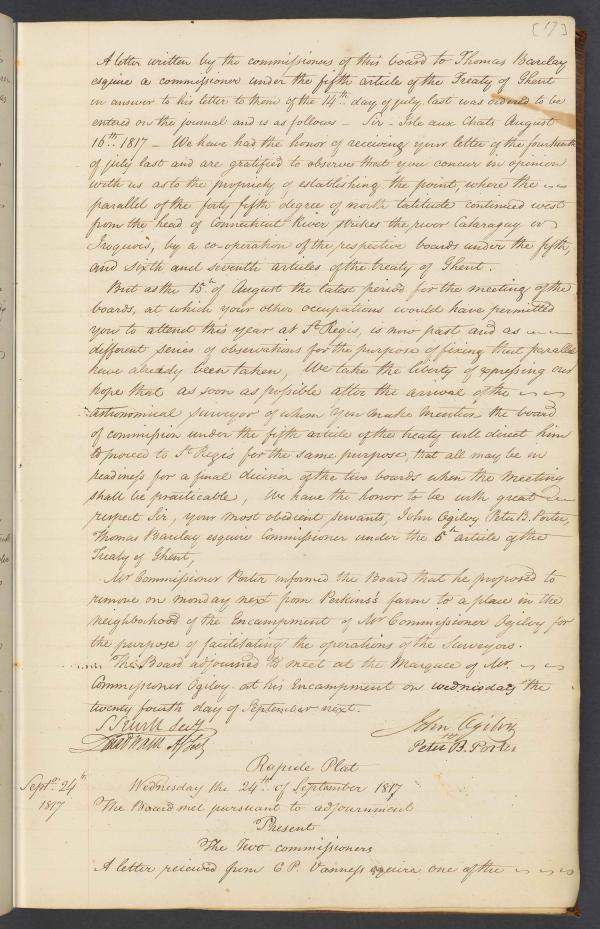 [17]
A letter written by the commissioners of this board to Thomas Barclay
esquire a commissioner under the fifth article of the Treaty of Ghent
in answer to his letter to them of the 14th day of july last was ordered to be
entered on the journal and is as follows – Sir – Isle aux Chats August
16th 1817 – We have had the honor of receiving your letter of the fourteenth
of july last and are gratified to observe that you concur in opinion
with us as to the propriety of establishing the point, where the
parallel of the forty fifth degree of north latitude continued west
from the head of Connecticut River strikes the river Cataraguy or
Iroquois, by a co-operation of the respective boards under the fifth,
and sixth and seventh articles of the treaty of Ghent.
But as the 15th of August the latest period for the meeting of the
boards, at which your other occupations would have permitted
you to attend this year at St Regis, is now past and as
different series of observations for the purpose of fixing that parallel
have already been taken, We take the liberty of expressing our
hope that as soon as possible after the arrival of the
astronomical surveyor of whom you make mention the board
of commission under the fifth article of the treaty will direct him
to proceed to St Regis for the same purpose, that all may be in
readiness for a final decision of the two boards when the meeting
shall be practicable, We have the honor to be with great
respect Sir, your most obedient servants, John Ogilvy Peter B. Porter,
Thomas Barclay esquire Commissioner under the 5th article of the
Treaty of Ghent,
Mr Commissioner Porter informed the Board that he proposed to
remove on monday next from Perkins's farm to a place in the
neighborhood of the Encampment of Mr Commissioner Ogilvy for
the purpose of facilitating the operations of the Surveyors.
The Board adjourned to meet at the Marquee of Mr.
Commissioner Ogilvy at his Encampment on wednesday the
twenty fourth day of September next.
S Sewell Secy
John Ogilvy
Peter B. Porter
Rapide Plat
Septr 24th
1817
Wednesday the 24th of September 1817
The Board met pursuant to adjournment
Present
The Two commissioners
A letter reieved from C P. Vanness esquire one of the